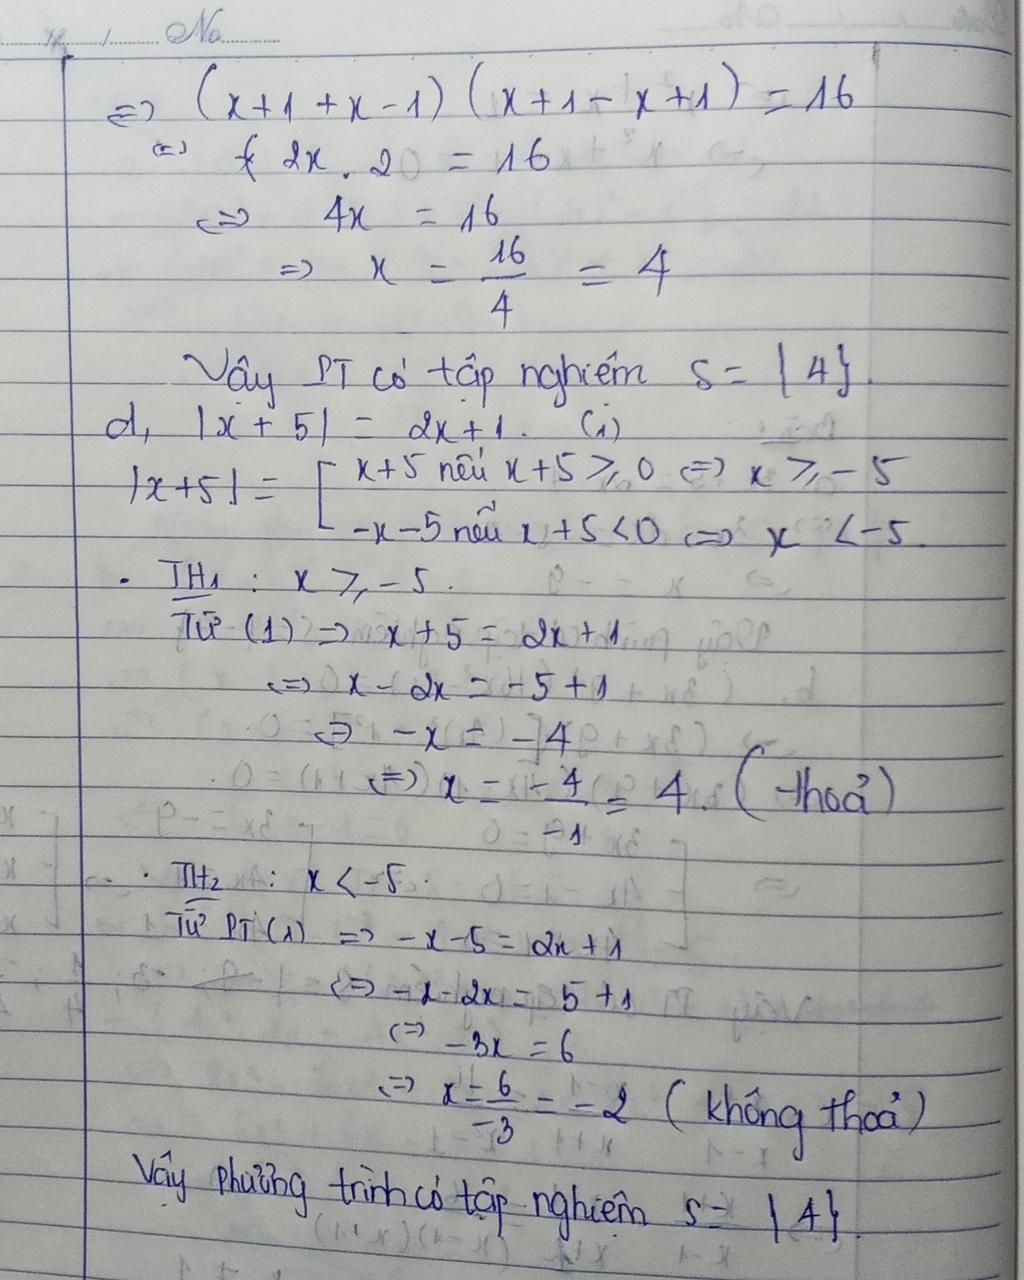 No
<=> (x+1+x-1)(x+1-x+1) = 16
<=> 2x . 2 = 16
<=> 4x = 16
=> x = 16/4 = 4
Vậy PT có tập nghiệm S = {4}.
d, |x+5| = 2x+1. (1)
|x+5| = [ x+5 nếu x+5 ≥ 0 <=> x ≥ -5
-x-5 nếu x+5<0 <=> x < -5.
. TH1 : x ≥ -5.
Từ (1) => x+5 = 2x+1
<=> x - 2x = -5+1
<=> -x = -4
<=> x = -4/-1 = 4. (thoả)
. TH2 : x < -5.
Từ PT (1) => -x-5 = 2x+1
<=> -x-2x = 5+1
<=> -3x = 6
<=> x = 6/-3 = -2 (không thoả)
Vậy phương trình có tập nghiệm S = {4}.